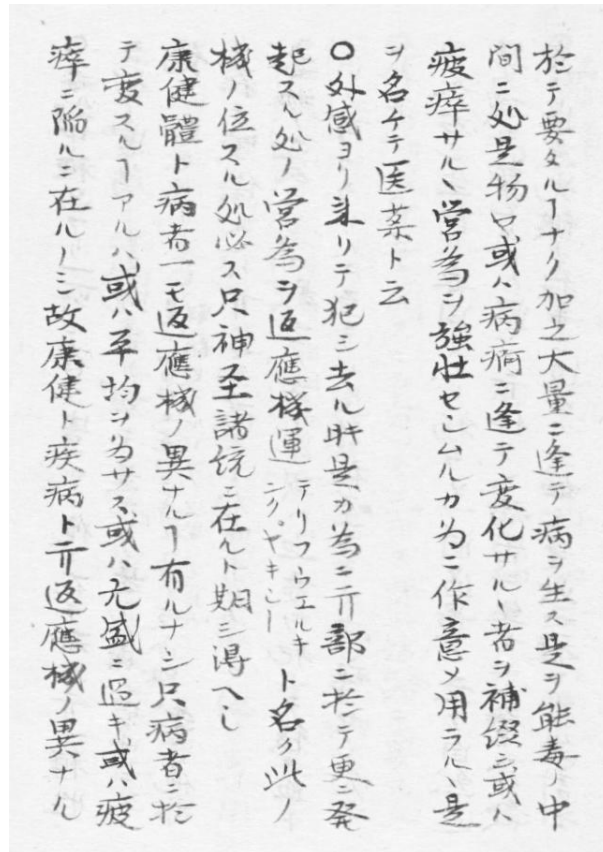 於テ要タルヿナク加之大量ニ逢テ病ヲ生ス是ヲ能毒ノ中
間ニ処是物ト或ハ病痾ニ逢テ変化サルヽ者ヲ補綴シ或ハ
疲瘁サルヽ営為ヲ強壮セシムルカ為ニ作意メ用ラルヽ是
ヲ名ケテ医薬ト云
〇外感ヨリ来リテ犯シ去ル時是カ為ニ亓部ニ於テ更ニ発
起スル処ノ営為ヲ返應機運 テリフウエルキ ングヤキシー ト名ク此ノ
機ノ位スル処必ス只神至諸統ニ在ルト期シ得ヘシ
康健體ト病者一モ返應機ノ異ナルヿ有ルナシ只病者ニ於
テ変スルヿアルハ或ハ平均ヲ為サス或ハ亢盛ニ過キ或ハ疲
瘁ニ陥ルニ在ルノミ故康健ト疾病ト亓返應機ノ異ナル